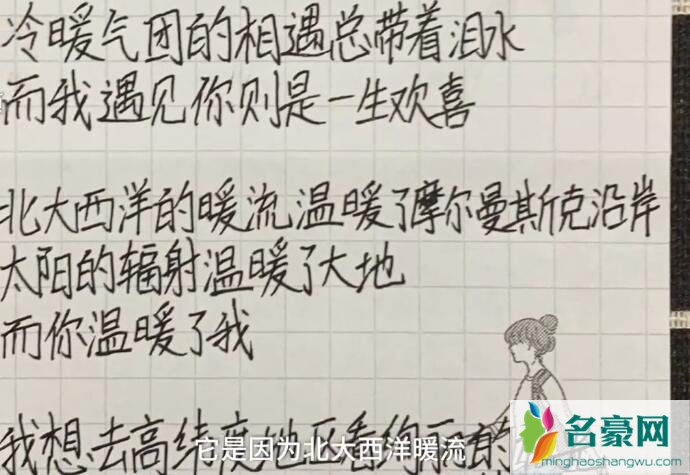 冷暖气团的相遇总带着泪水
而我遇见你则是一生欢喜
北大西洋的暖流温暖了摩尔曼斯克沿岸
太阳的辐射温暖了大地
而你温暖了我
我想去高纬度地区看绚丽的
它是因为北大西洋暖流
名豪网
minghaoshangwu.com